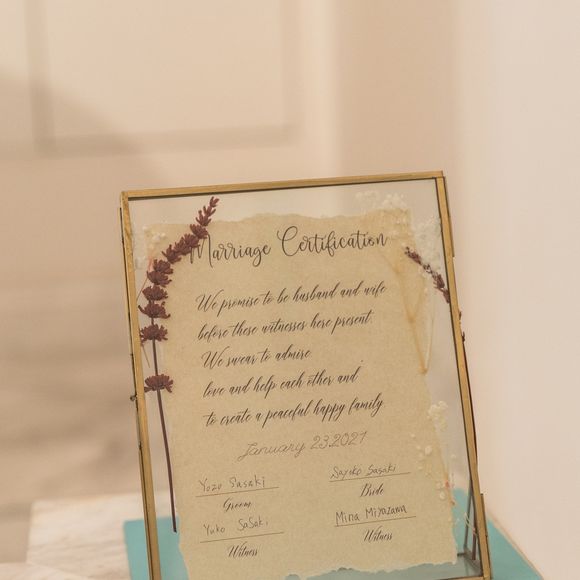 Marriage Certification
We promise to be husband and wife
before these witnesses here present.
We swear to admire
love and help each other and
to create a peaceful happy family.
January 23.2021
Yozo Sasaki
Groom
Sayoko Sasaki
Bride
Yuko SaSaki
Witness
Mina Miyazawa
Witness